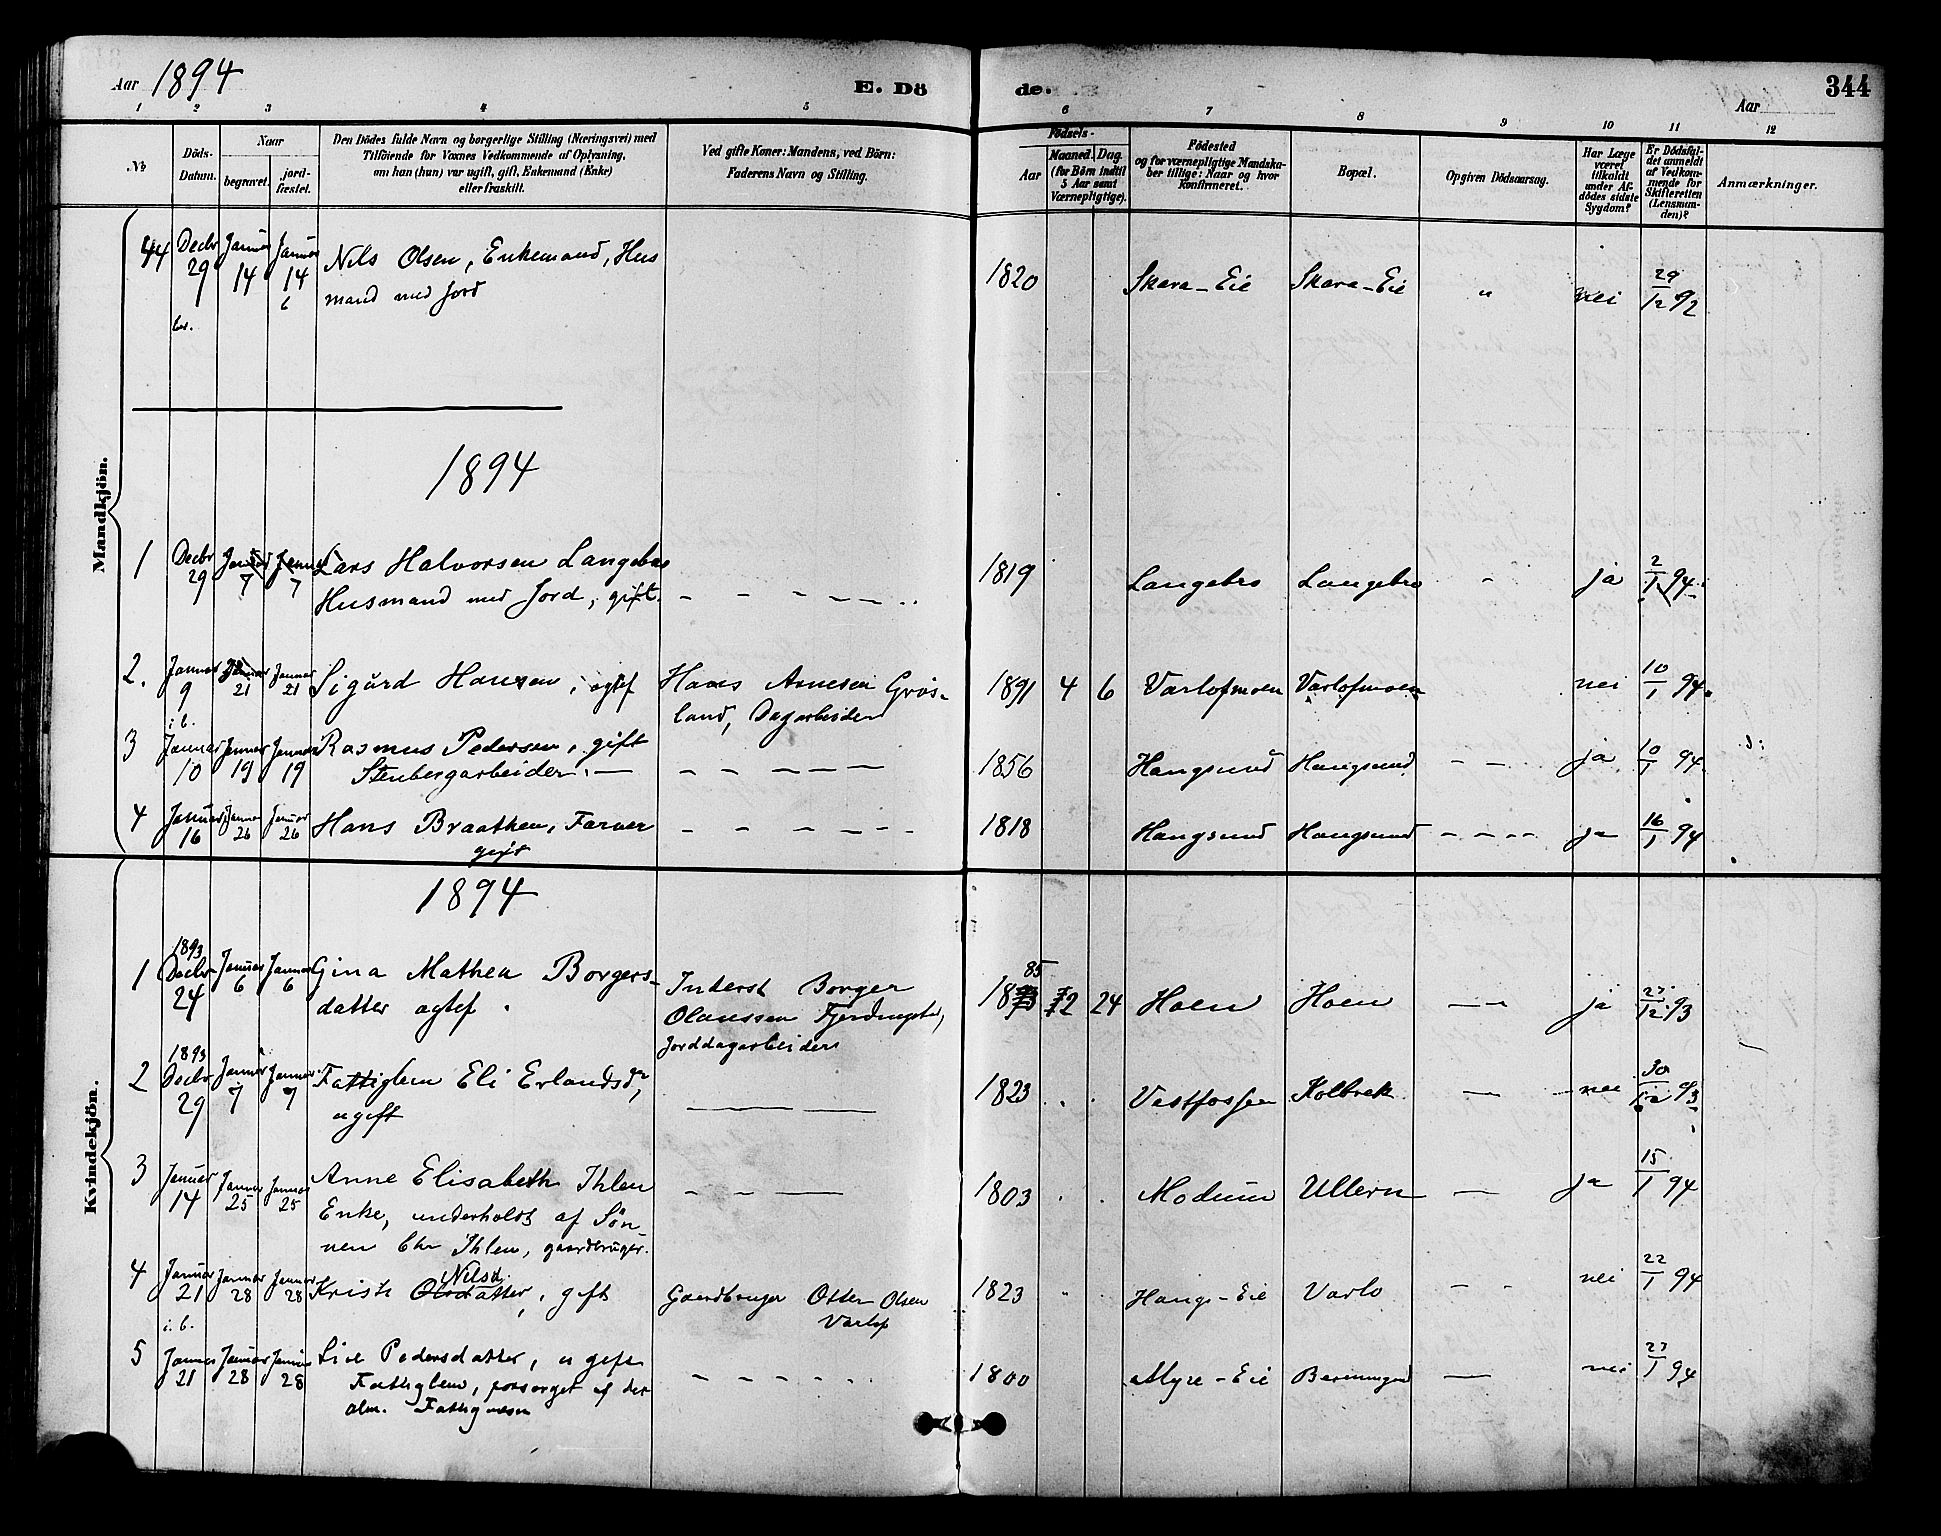 Aar 1894
E. Döde.
Aar
344
1 2 3 4 5 6 7 8 9 10 11 12
№
Döds-
Datum.
Naar
begravet.
jord-
fæstet.
Den Dödes fulde Navn og borgerlige Stilling (Næringsvei) med
Tilföiende for Voxnes Vedkommende af Oplysning,
om han (hun) var ugift, gift, Enkemand (Enke)
eller fraskilt.
Ved gifte Koner: Mandens, ved Börn:
Faderens Navn og Stilling.
Födsels-
Aar
Maaned. Dag
(for Börn indtil
5 Aar samt
Værnepligtige).
Födested
og for værnepligtige Mandska-
ber tillige: Naar og hvor
konfirmeret.
Bopæl.
Opgiven Dödsaarsag.
Har Læge
været
tilkaldt
under Af-
dödes sidste
Sygdom?
Er Dödsfal-
det anmeldt
af Vedkom-
mende for
Skifteretten
(Lensman-
den)?
Anmærkninger.
Mandkjön.
44 Decbr 29 Januar 14 Januar 14 Nils Olsen, Enkemand, Hus
mand med Jord
1820 Skara-Eie Skara-Eie " nei 29/12 92
1894
1 Decbr 29 Januar 7 Januar 7 Lars Halvorsen Langebro
Husmand med Jord, gift.
1819 Langebro Langebro - ja 2/1 94
2. Januar 9 Januar 21 Januar 21 Sigurd Hansen, ægtef
Hans Arnesen Grøs-
land, Dagarbeider
1891 4 6 Varlofmoen Varlofmoen nei 10/1 94
i b.
3 Januar 10 Januar 19 Januar 19 Rasmus Pedersen, gift
Stenbergarbeider. —
1856 Haugsund Haugsund - - ja 10/1 94
4 Januar 16 Januar 26 Januar 26 Hans Braathen, Farver
gift
1818 Haugsund Haugsund - - - - ja 16/1 94
Kvindekjön.
1894
1 1893 Decbr 24 Januar 6 Januar 6 Gina Mathea Borgers-
datter ægtef.
Inderst Borger
Olaussen
Jorddagarbeider
1885 12 24 Hoen Hoen — ja 27/12 93
2 1893 Decbr 29 Januar 7 Januar 7 Fattiglem Eli Erlandsdr,
ugift
1823 Vestfossen Kolbræk — nei 30/12 93
3 Januar 14 Januar 25 Januar 25 Anne Elisabeth Ihlen
Enke, underholdt af Søn
nen Chr Ihlen, gaardbruger.
1803 Modum Ullern — ja 15/1 94
4 Januar 21 Januar 28 Januar 28 Kristi Nilsdatter, gift
Gaardbruger Otter Olsen
Varlof
1823 " Haugs-Eie Varlo - - nei 22/1 94
i. b.
5 Januar 21 Januar 28 Januar 28 Live Pedersdatter, ugift
Fattiglem, forsørget af det
alm. Fattigvæsen
1800 Myre-Eie — nei 27/1 94